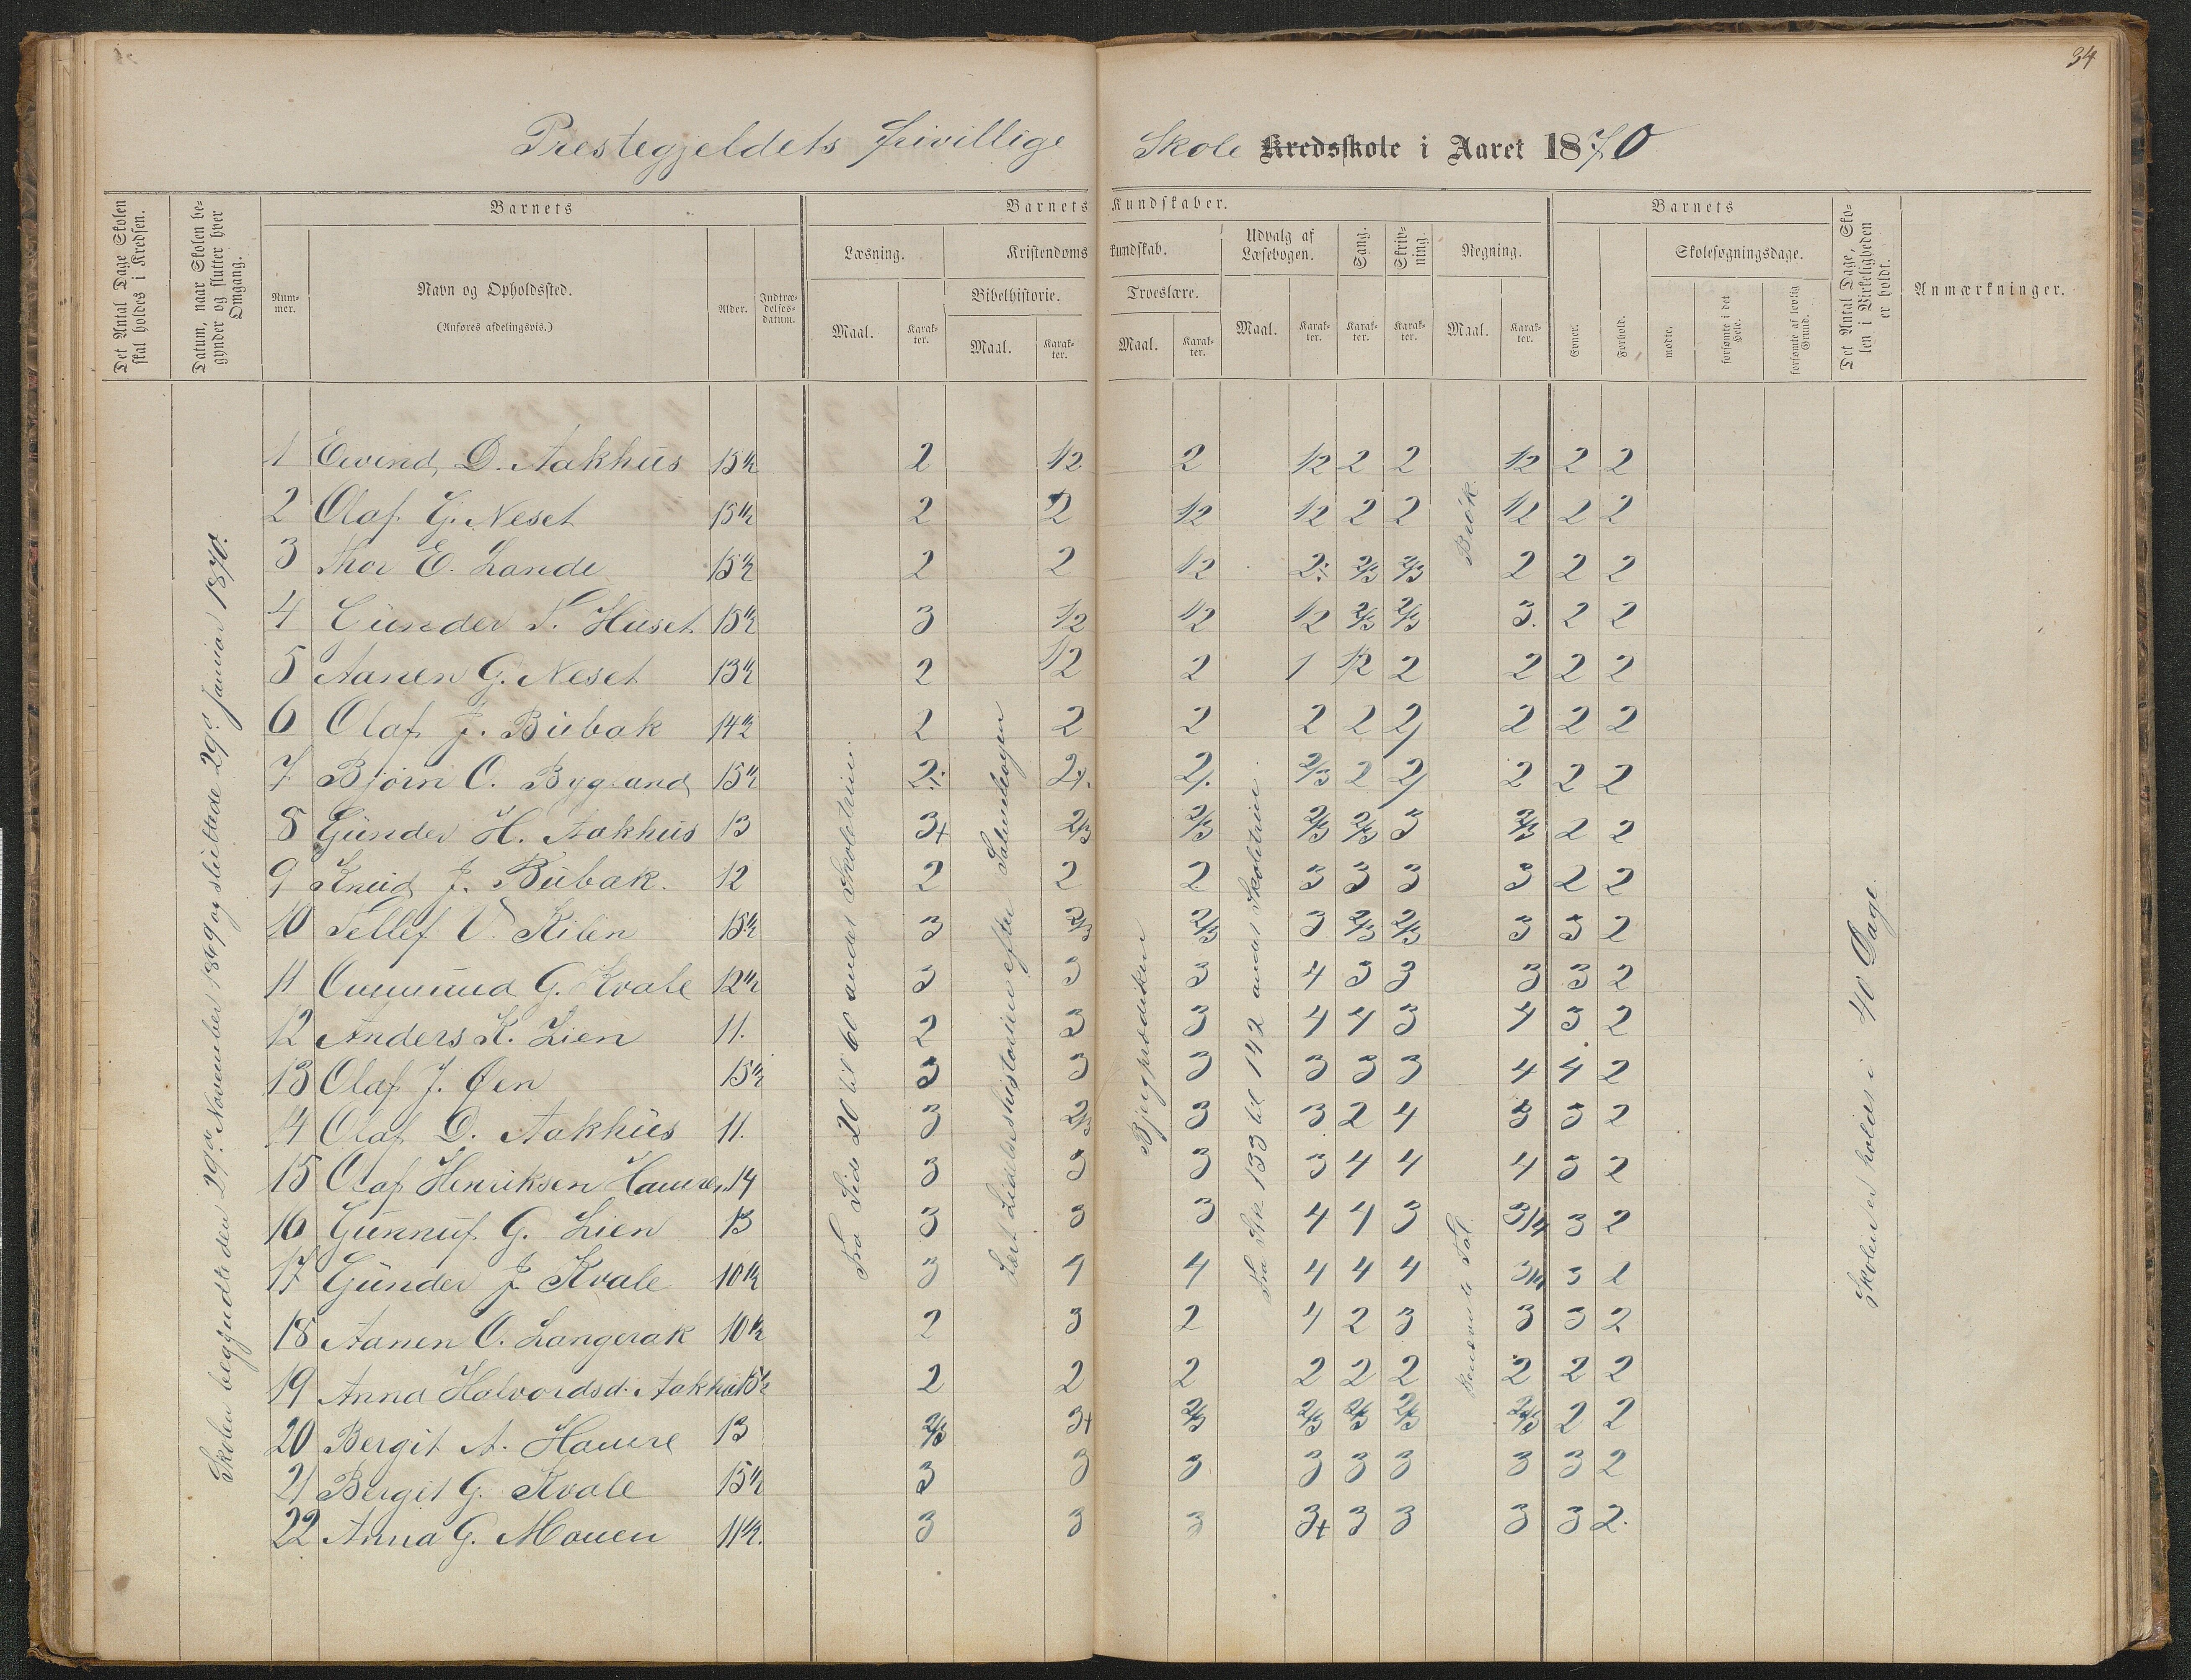 34
Prestegjeldets frivillige Skole Kredsskole i Aaret 1870
Det Antal Dage Skolen skal holdes i Kredsen.
Datum, naar Skolen begynder og slutter hver Omgang.
Barnets
Nummer.
Navn og Opholdssted.
(Anføres afdelingsvis.)
Alder.
Indtrædelsesdatum.
Barnets Kundskaber.
Læsning.
Maal.
Karakter.
Kristendomskundskab.
Bibelhistorie.
Maal.
Karakter.
Troeslære.
Maal.
Karakter.
Udvalg af Læsebogen.
Maal.
Karakter.
Sang.
Karakter.
Skrivning.
Karakter.
Regning.
Maal.
Karakter.
Barnets
Evner.
Forhold.
Skolesøgningsdage.
mødte.
forsømte i det Hele.
forsømte af lovlig Grund.
Det Antal Dage, Skolen i Virkeligheden er holdt.
Anmærkninger.
1 Eivind D. Aakhus 15½ 2 1/2 2 1/2 2 2 1/2 2 2
2 Olaf G. Neset 15½ 2 2 1/2 1/2 2 2 1/2 2 2
3 Thor E. Lande 15½ 2 2 1/2 2÷ 2/3 2/3 2 2 2
4 Gunder T. Huset 15½ 3 1/2 1/2 1/2 2/3 2/3 3. 2 2
5 Aanen G. Neset 13½ 2 1/2 2 1 1/2 2 2 2 2
6 Olaf J. Bubak 14½ 2 2 2 2 2 2 2 2 2
7 Bjørn O. Bygland 15½ 2÷ 2÷ 2÷ 2/3 2 2 2 2 2
8 Gunder H. Aakhus 13 3+ 2/3 2/3 2/3 2/3 3 2/3 2 2
9 Knud J. Bubak. 12 2 2 2 3 3 3 3 2 2
10 Tellef V. Kilen 15½ 3 2/3 2/3 3 2/3 2/3 3 3 2
11 Ommund G. Kvale 12½ 3 3 3 4 3 3 3 3 2
12 Anders K. Lien 11. 2 3 3 4 4 3 4 3 2
13 Olaf J. Øen 15½ 3 3 3 3 3 3 4 4 2
14 Olaf D. Aakhus 11. 3 2/3 3 3 2 4 3 3 2
15 Olaf Henriksen Haure, 14 3 3 3 3 4 4 4 3 2
16 Gunnuf G. Lien 13 3 3 3 4 4 3 3/4 3 2
17 Gunder J Kvale 10½ 3 4 4 4 4 4 3/4 3 1
18 Aanen O. Langerak 10½ 2 3 2 4 2 3 3 3 2
19 Anna Halvordsd. Aakhus 15½ 2 2 2 2 2 2 2 2 2
20 Bergit A. Haure 13 2/3 3+ 2/3 2/3 2/3 2/3 2/3 2 2
21 Bergit G. Kvale 15½ 3 3 3 3 3 3 3 3 2
22 Anna G. Mouen 11½. 3 3 3 3+ 3 3 3 3 2.
Skolen begyndte den 29de November 1869 og sluttede 29de Januar 1870.
Fra Side 20 til 60 andet Skoletrin.
Læst Lidelseshistorien efter Salmebogen
Fra Stk. 133 til 142 andet Skoletrin.
Brøk.
Benævnte Tal.
Skolen er holdt i 40 Dage.